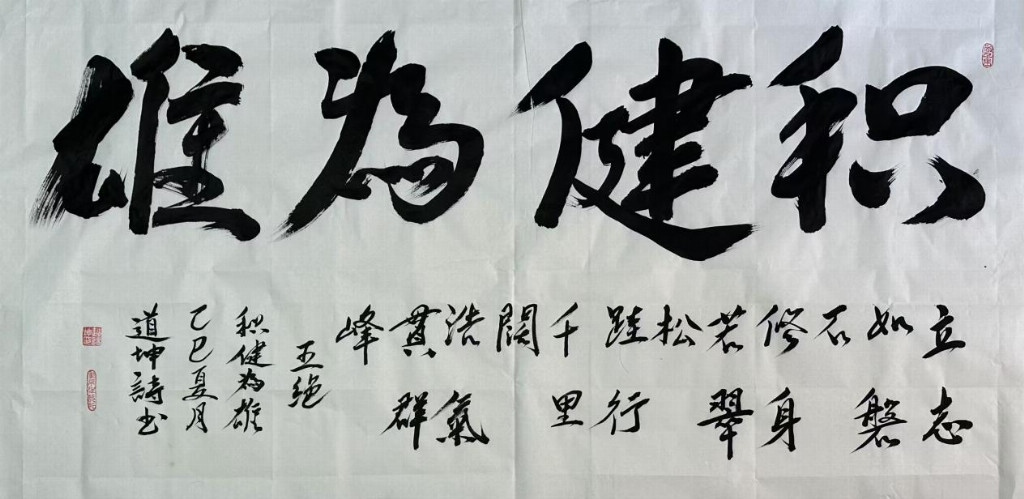 积健為雄
立志
如磐
石
修身
若翠
松
跬行
千里
阔
浩氣
貫群
峰
五绝
积健為雄
乙巳夏月
道坤詩书